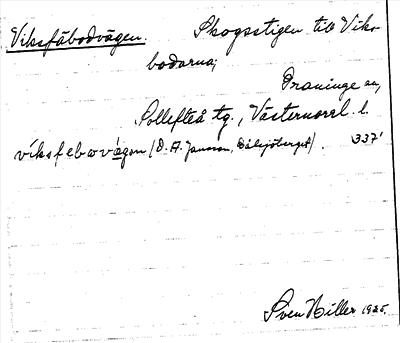 Viksfäbodvägen. Skogsstigen till Viks-
bodarna;
Graninge sn,
Sollefteå tg., Västernorrl. l.
víksfebωvágan (O. A. Jansson, Bölsjöberget). 337'
Sven Hiller 1925.